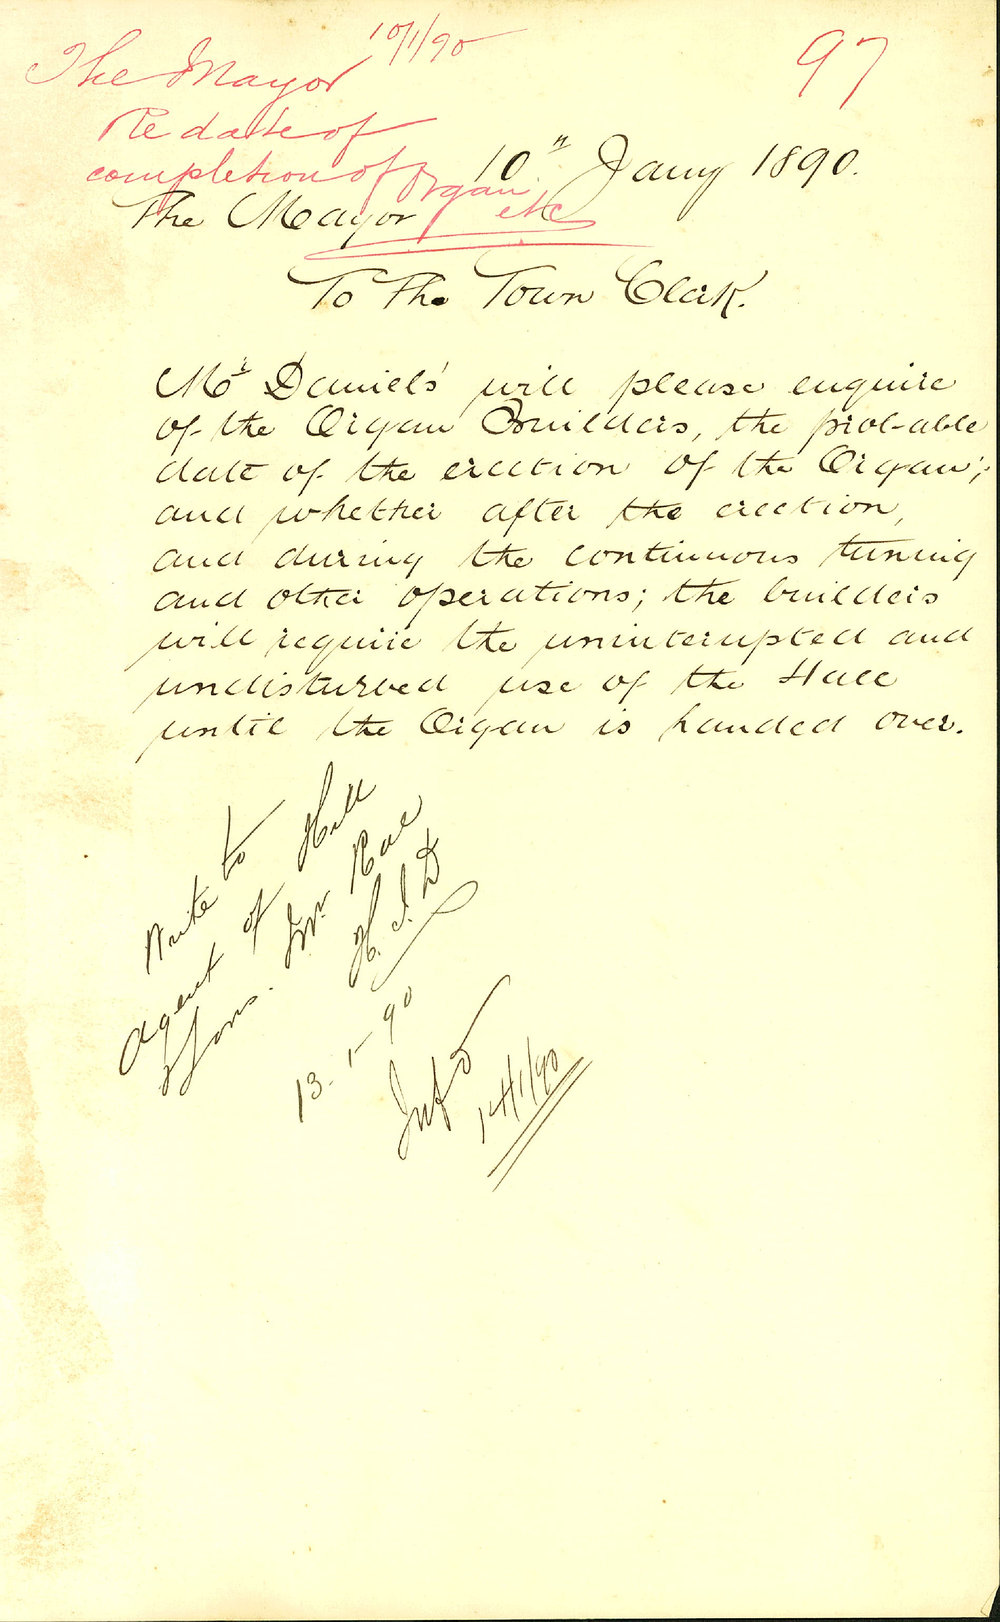 10/1/90
97
The Mayor
Re date of
completion of Organ
etc
10th Jany 1890.
The Mayor
To The Town Clerk.
Mr Daniels' will please enquire
of the Organ Builders, the prob-able
date of the erection of the Organ;
and whether after the erection,
and during the continuous tuning
and other operations; the builders
will require the uninterupted and
undisturbed use of the Hall
until the Organ is handed over.
Write to
Agent of Hill
& Sons. Mr Rae
H.J.D
13-1-90
14/1/90